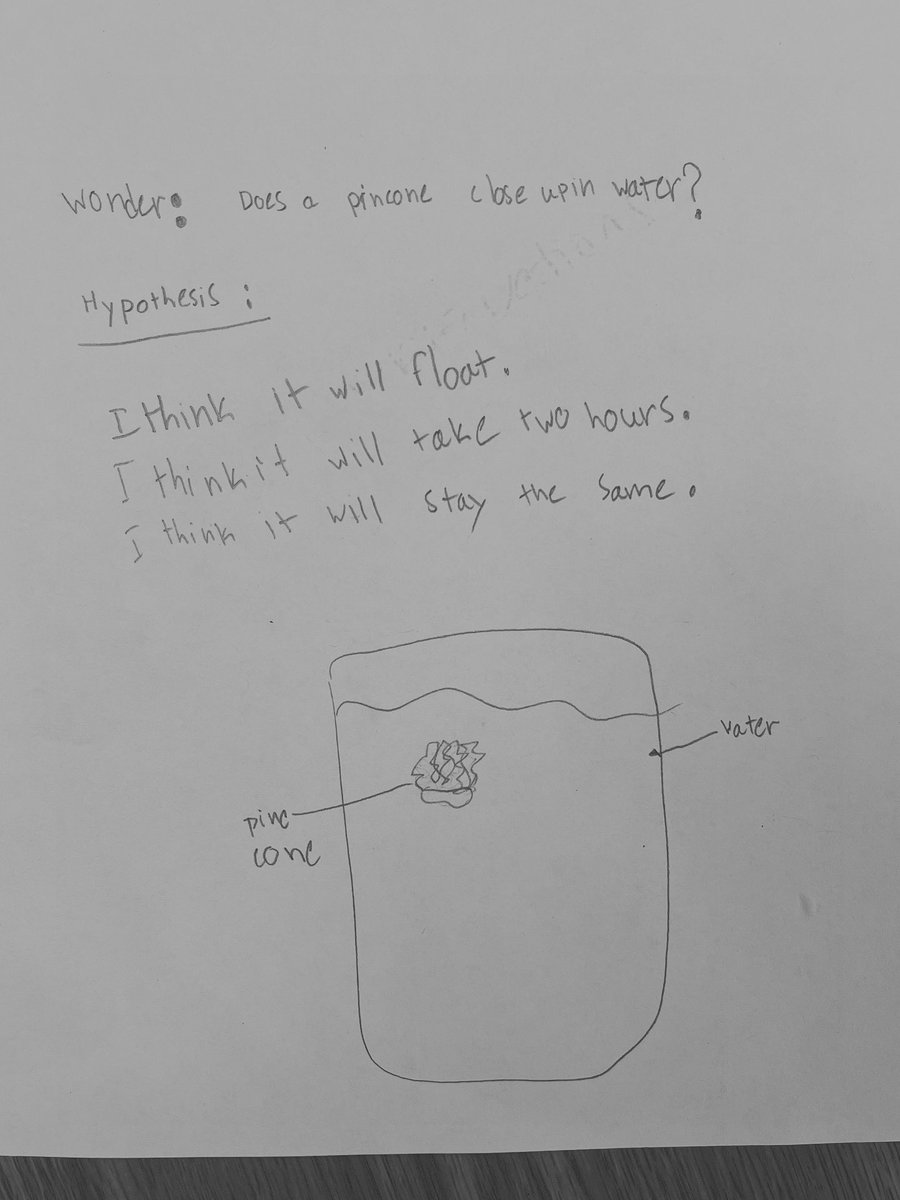 Wonder: Does a pincone close up in water?
Hypothesis :
I think it will float.
I think it will take two hours.
I think it will stay the same.
water
pine
cone